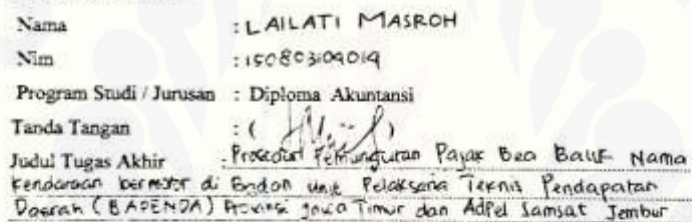 Nama : LAILATI MASROH
Nim : 150803104019
Program Studi / Jurusan : Diploma Akuntansi
Tanda Tangan : ( )
Judul Tugas Akhir : Prosedur Pemungutan Pajak Bea Balik Nama
kendaraan bermotor di Badan Unit Pelaksana Teknis Pendapatan
Daerah (BAPENDA) Provinsi Jawa Timur dan Adpel Samsat Jember